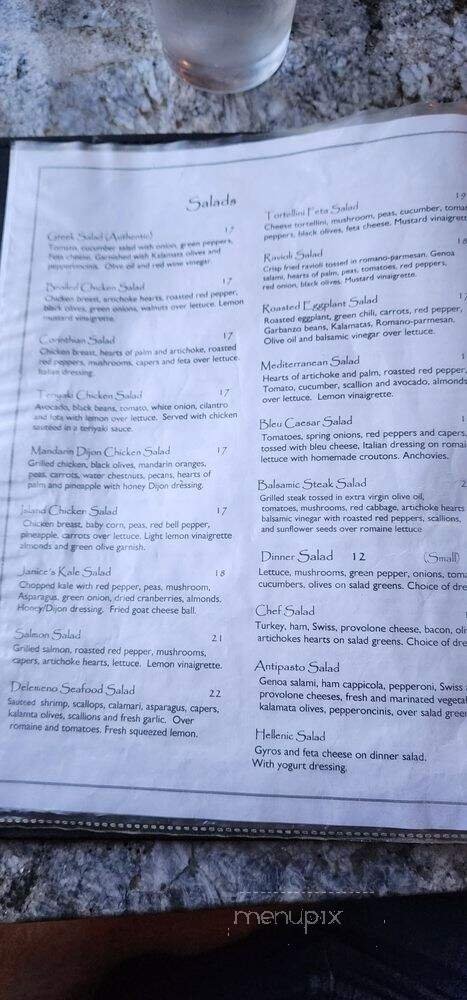 Salads
Greek Salad (Authentic) 17
Tomato, cucumber salad with onion, green peppers,
Feta cheese, Garnished with Kalamata olives and
pepperoncinis. Olive oil and red wine vinegar
Broiled Chicken Salad 17
Chicken breast, artichoke hearts, roasted red pepper,
black olives, green onions, walnuts over lettuce. Lemon
mustard vinaigrette.
Corinthian Salad 17
Chicken breast, hearts of palm and artichoke, roasted
red peppers, mushrooms, capers and feta over lettuce.
Italian dressing.
Teriyaki Chicken Salad 17
Avocado, black beans, tomato, white onion, cilantro
and feta with lemon over lettuce. Served with chicken
sauteed in a teriyaki sauce.
Mandarin Dijon Chicken Salad 17
Grilled chicken, black olives, mandarin oranges,
peas, carrots, water chestnuts, pecans, hearts of
palm and pineapple with honey Dijon dressing.
Island Chicken Salad 17
Chicken breast, baby corn, peas, red bell pepper,
pineapple, carrots over lettuce. Light lemon vinaigrette
almonds and green olive garnish.
Janice's Kale Salad 18
Chopped kale with red pepper, peas, mushroom,
Asparagus, green onion, dried cranberries, almonds.
Honey/Dijon dressing. Fried goat cheese ball.
Salmon Salad 21
Grilled salmon, roasted red pepper, mushrooms,
capers, artichoke hearts, lettuce. Lemon vinaigrette.
Delemeno Seafood Salad 22
Sauteed shrimp, scallops, calamari, asparagus, capers,
kalamta olives, scallions and fresh garlic. Over
romaine and tomatoes. Fresh squeezed lemon.
Tortellini Feta Salad 19
Cheese tortellini, mushroom, peas, cucumber, tomat
peppers, black olives, feta cheese. Mustard vinaigrett
Ravioli Salad 18
Crisp fried ravioli tossed in romano-parmesan. Genoa
salami, hearts of palm, peas, tomatoes, red peppers,
red onion, black olives. Mustard vinaigrette.
Roasted Eggplant Salad 17
Roasted eggplant, green chili, carrots, red pepper,
Garbanzo beans, Kalamatas, Romano-parmesan.
Olive oil and balsamic vinegar over lettuce.
Mediterranean Salad 1
Hearts of artichoke and palm, roasted red pepper,
Tomato, cucumber, scallion and avocado, almonds
over lettuce. Lemon vinaigrette.
Bleu Caesar Salad 1
Tomatoes, spring onions, red peppers and capers,
tossed with bleu cheese, Italian dressing on romai
lettuce with homemade croutons. Anchovies.
Balsamic Steak Salad 2
Grilled steak tossed in extra virgin olive oil,
tomatoes, mushrooms, red cabbage, artichoke hearts
balsamic vinegar with roasted red peppers, scallions,
and sunflower seeds over romaine lettuce
Dinner Salad 12 (Small)
Lettuce, mushrooms, green pepper, onions, toma
cucumbers, olives on salad greens. Choice of dre
Chef Salad
Turkey, ham, Swiss, provolone cheese, bacon, oli
artichokes hearts on salad greens. Choice of dre
Antipasto Salad
Genoa salami, ham cappicola, pepperoni, Swiss
provolone cheeses, fresh and marinated vegetal
kalamata olives, pepperoncinis, over salad green
Hellenic Salad
Gyros and feta cheese on dinner salad.
With yogurt dressing.
menupix